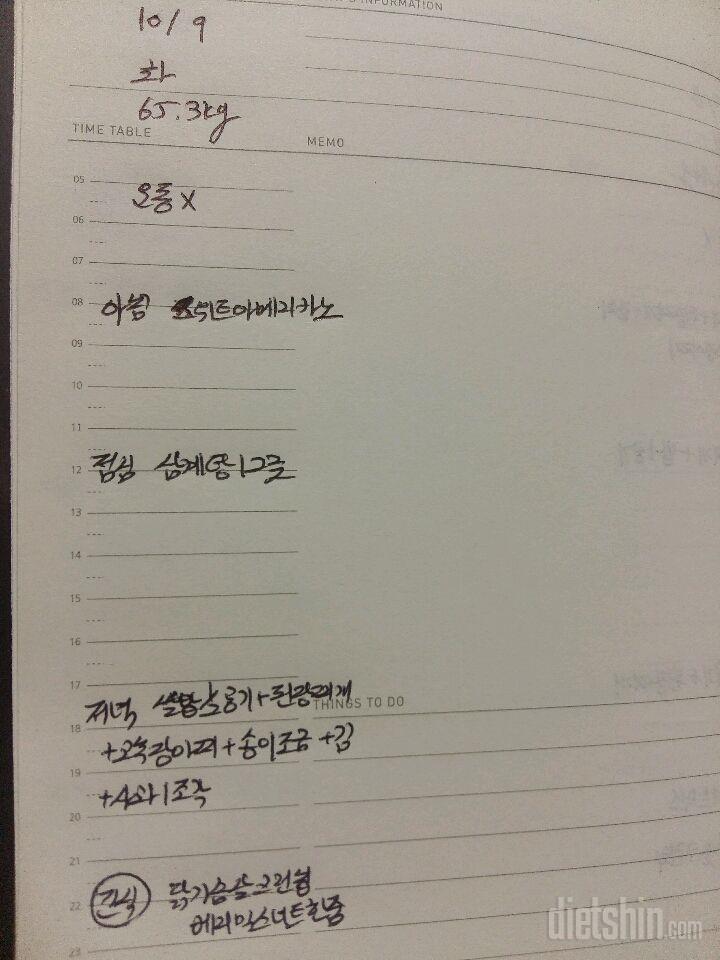 INFORMATION
10/9
화
65.3kg
TIME TABLE
MEMO
05
오통 X
06
07
08
아침 스위트아메리카노
09
10
11
12
점심 삼계탕 1그릇
13
14
15
16
17
저녁 쌀밥 반공기+된장찌개
THINGS TO DO
18
+고추장아찌+송이조금+김
19
+사과1조각
20
21
간식 닭가슴살크런칩
22
베리믹스너트한줌
23
dietshin.com